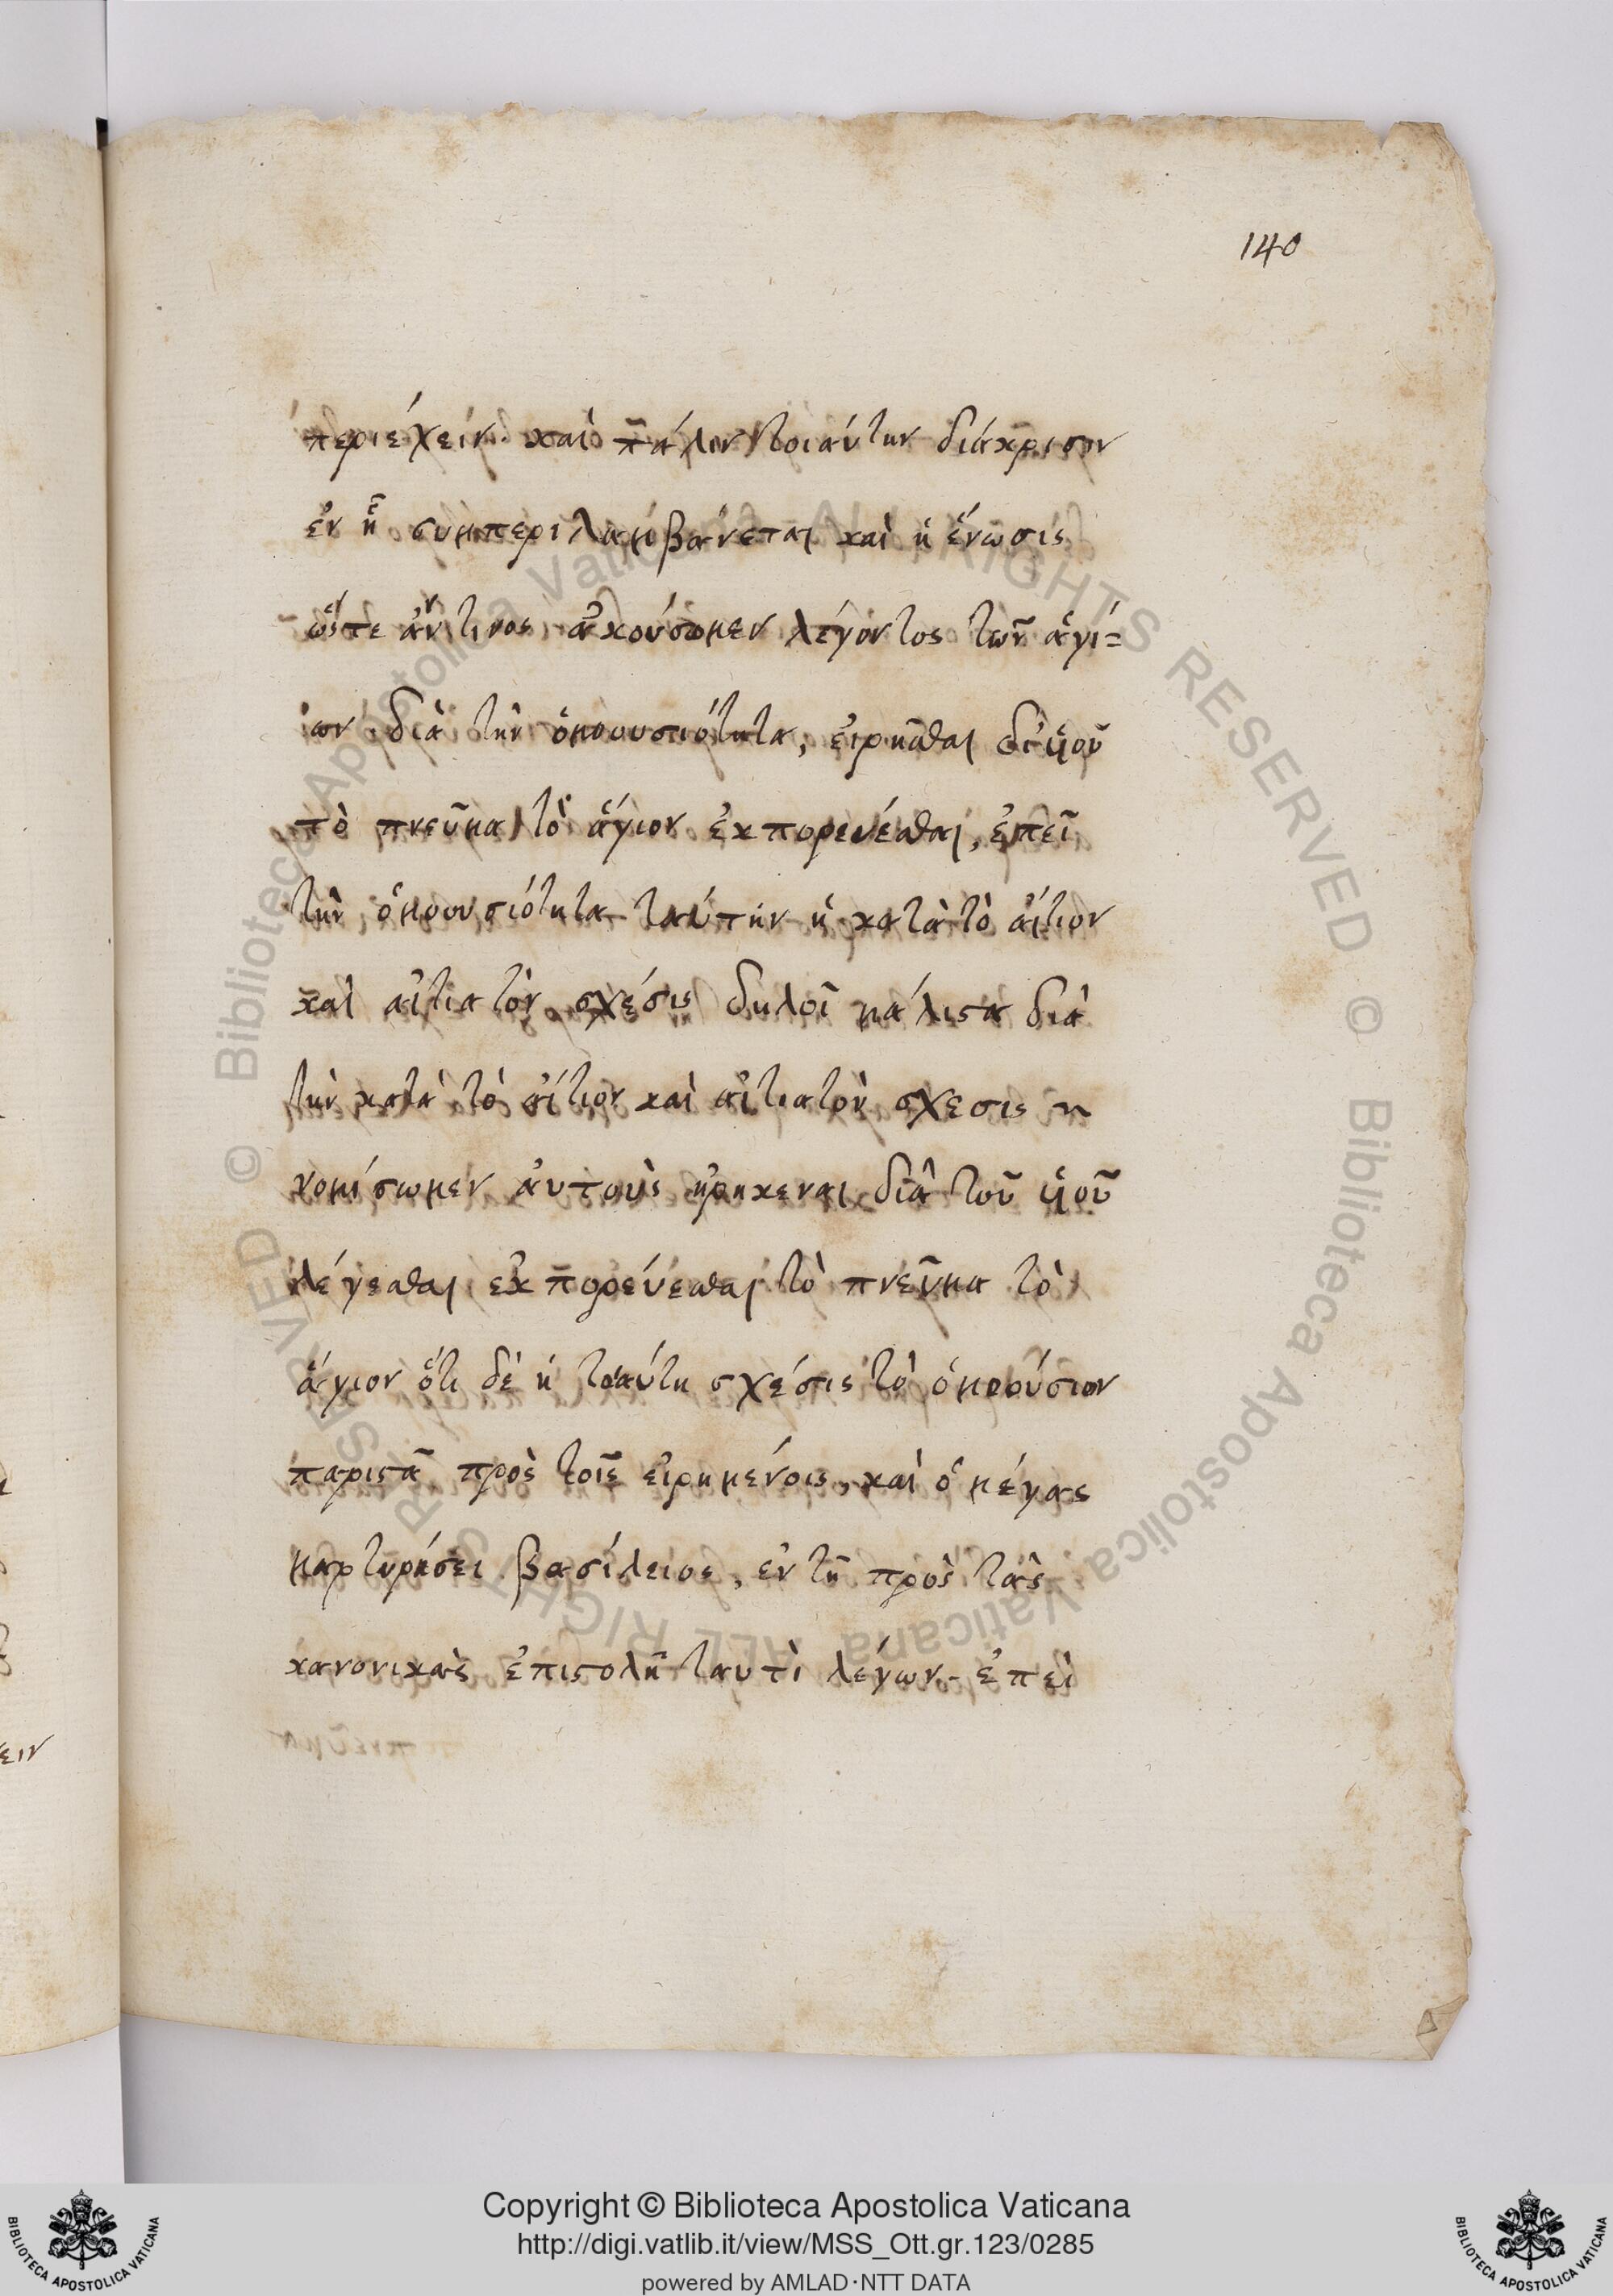 140
περιέχειν. καὶ πάλιν τοιαύτην διάκρισιν
ἐν ᾗ συμπεριλαμβάνεται καὶ ἡ ἕνωσις
ὥστε ἄν τινος ἀκούσωμεν λέγοντος τῶν ἁγί=
ων διὰ τὴν ὁμοουσιότητα, εἰρῆσθαι δι' υἱοῦ
τὸ πνεῦμα τὸ ἅγιον ἐκπορευέσθαι, ἐπεῖ
τὴν ὁμοουσιότητα ταύτην ἡ κατὰ τὸ αἴτιον
καὶ αἰτιατὸν σχέσις δηλοῖ μάλιστα διὰ
τὴν κατὰ τὸ αἴτιον καὶ αἰτιατὸν σχεσις
νομίσωμεν ἀυτοὺς ηρηκεναι διὰ τοῦ υἱοῦ
λέγεσθαι ἐκπορεύεσθαι τὸ πνεῦμα τὸ
ἅγιον ὅτι δὲ ἡ τοιαύτη σχέσις τὸ ὁμοούσιον
παριστᾶ πρὸς τοῖς εἰρημένοις, καὶ ὁ μέγας
μαρτυρήσει βασίλειος, ἐν τῇ πρὸς τὰς
κανονικὰς ἐπιστολῇ ταυτὶ λέγων. ἐπεὶ
ειν
© Biblioteca Apostolica Vaticana ALL RIGHTS RESERVED © Biblioteca Apostolica Vaticana ALL RIGHTS RESERVED
Copyright © Biblioteca Apostolica Vaticana
http://digi.vatlib.it/view/MSS_Ott.gr.123/0285
powered by AMLAD·NTT DATA
BIBLIOTECA APOSTOLICA VATICANA
BIBLIOTECA APOSTOLICA VATICANA